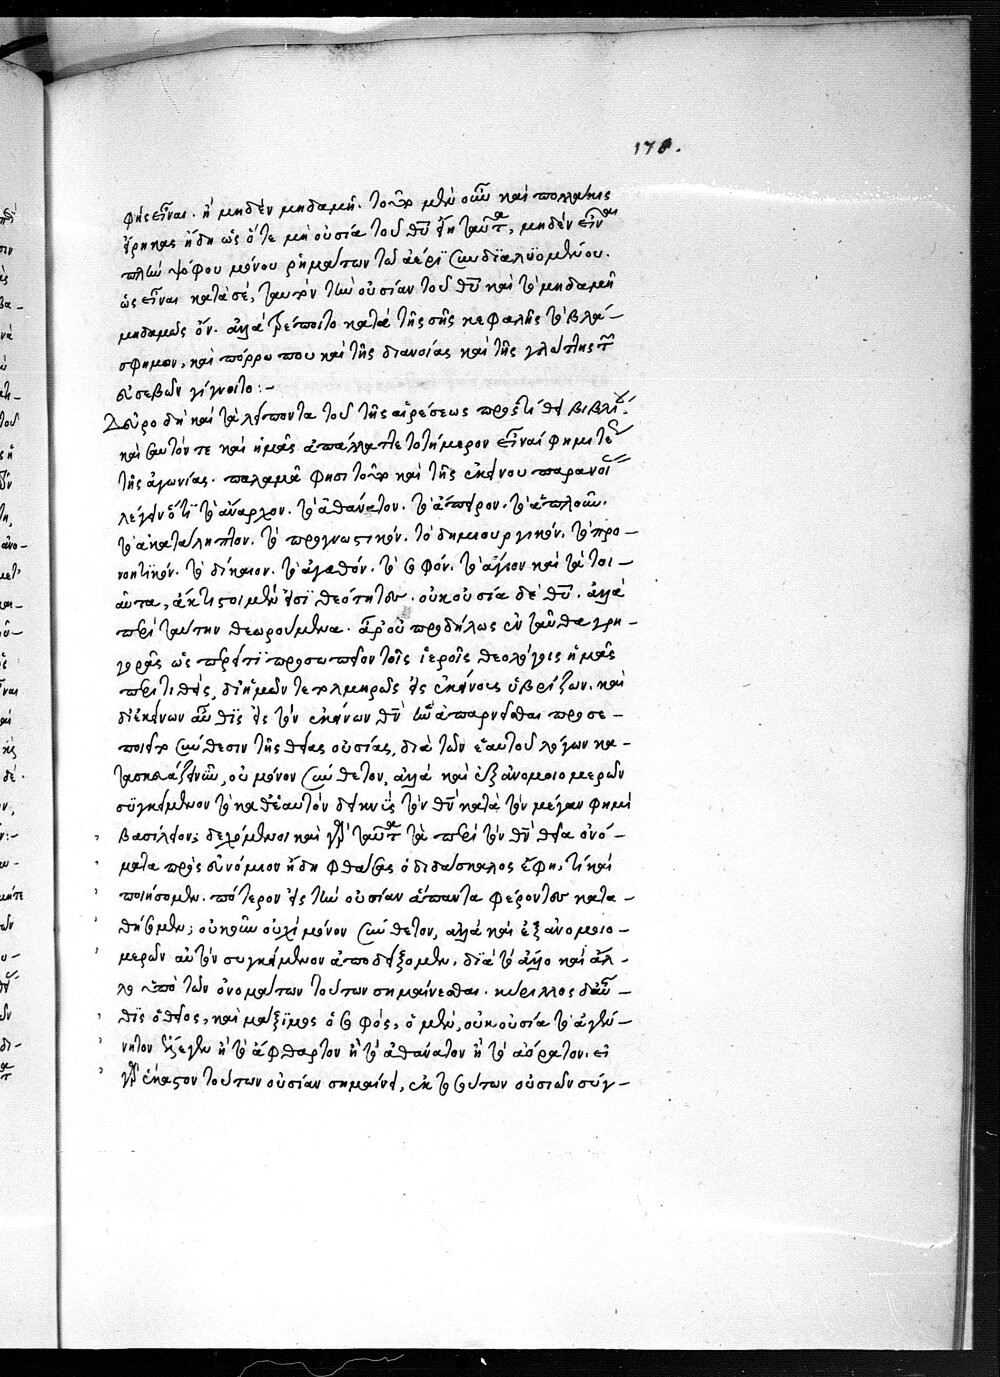 178.
φῂς εἶναι. ἢ μηδὲν μηδαμῆ. τοῦτο μὲν οὖν καὶ πολλάκις
εἴρηκας ἤδη ὡς ὅτε μὴ οὐσία τοῦ θῦ εἴη ταῦτα, μηδὲν εἶναι
πλὴν ψόφου μόνου ῥημάτων τῶ ἀέρι συνδιαλυομένου.
ὡς εἶναι κατὰ σέ, ταυτὸν τὴν οὐσίαν τοῦ θῦ καὶ τὸ μηδαμῆ
μηδαμῶς ὄν. ἀλλὰ τρέποιτο κατὰ τῆς σῆς κεφαλῆς τὸ βλά-
σφημον, καὶ πόρρω που καὶ τῆς διανοίας καὶ τῆς γλώττης τῶν
εὐσεβῶν γίγνοιτο:-
Δεῦρο δὴ καὶ τὰ λείποντα τοῦ τῆς αἱρέσεως προστιθεὶ βιβλίου.
καὶ σαυτόν τε καὶ ἡμᾶς ἀπάλλαττε τοτήμερον εἶναί φημι τε
τῆς ἀγωνίας. παλαμᾶ φησι τοῦτο καὶ τῆς ἐκείνου παρανοίας
λέγειν ὅτι τὸ ἄναρχον. τὸ ἀθάνατον. τὸ ἄπειρον. τὸ ἁπλοῦν.
τὸ ἀκατάληπτον. τὸ προγνωστικόν. τὸ δημιουργικόν. τὸ προ-
νοητικόν. τὸ δίκαιον. τὸ ἀγαθόν. τὸ σοφόν. τὸ ἅγιον καὶ τὰ τοι-
αῦτα, ἄκτιστοι μέν εἰσι θεότητες. οὐκ οὐσία δὲ θῦ. ἀλλὰ
περὶ ταύτην θεωρούμενα. ἆρ' οὐ προδήλως ἐνταῦθα γρη-
γορᾶς ὡς περιττὶ προσωπεῖον τοῖς ἱεροῖς θεολόγοις ἡμᾶς
περιτιθείς, δι' ἡμῶν τε τολμηρῶς εἰς ἐκείνους ὑβρίζων. καὶ
δι' ἐκείνων αὖθις εἰς τὸν ἐκείνων θν̄ ὃν ἀπαρνεῖσθαι προσε-
ποιεῖτο σύνθεσιν τῆς θείας οὐσίας, διὰ τῶν ἑαυτοῦ λόγων κα-
τασκευάζειν, οὐ μόνον σύνθετον, ἀλλὰ καὶ ἐξ ἀνομοιομερῶν
συγκείμενον τὸ καθ' ἑαυτὸν δεικνὺς τὸν θν̄ κατὰ τὸν μέγαν φημὶ
βασίλειον; δεχόμενοι καὶ γὰρ ταῦτα τὰ περὶ τὸν θν̄ θεῖα ὀνό-
ματα πρὸς εὐνόμιον ἤδη φθάσας ὁ διδάσκαλος ἔφη, τί καὶ
ποιήσομεν. πότερον εἰς τὴν οὐσίαν ἅπαντα φέροντες κατα-
θήσομεν; οὐκοῦν οὐχὶ μόνον σύνθετον, ἀλλὰ καὶ ἐξ ἀνομοιο-
μερῶν αὐτὸν συγκείμενον ἀποδείξομεν. διὰ τὸ ἄλλο καὶ ἄλ-
λο ὑπὸ τῶν ὀνομάτων τούτων σημαίνεσθαι. κύριλλος δ' αὖ-
θις ὁ θεῖος, καὶ μάξιμος ὁ σοφός, ὁ μὲν, οὐκ οὐσία τὸ ἀγέν-
νητον ἔλεγεν ἢ τὸ ἄφθαρτον ἢ τὸ ἀθάνατον ἢ τὸ ἀόρατον. εἰ
γὰρ ἕκαστον τούτων οὐσίαν σημαίνει, ἐκ τοσούτων οὐσιῶν σύγ-